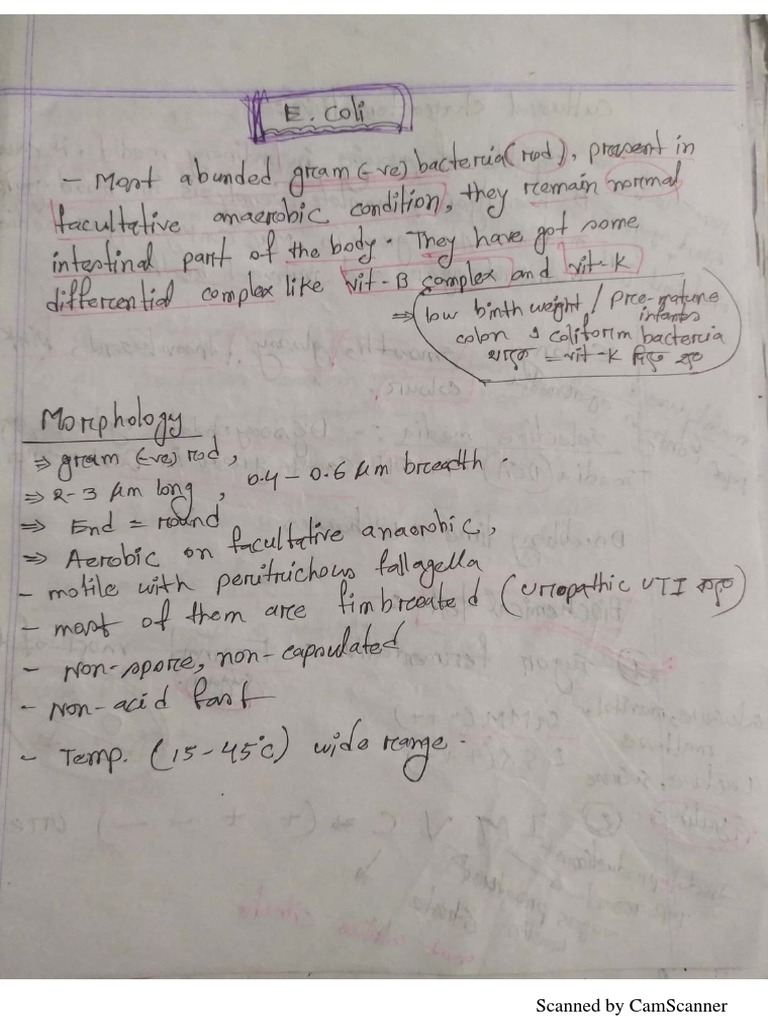 E. coli
- Most abunded gram (-ve) bacteria (rod), present in
facultative anaerobic condition, they remain normal
intestinal part of the body. They have got some
differential complex like vit-B complex and vit-K
⇒ low birth weight / Pre-mature
infants
colon ও coliform bacteria
থাকে = vit-K দিতে হয়
Morphology
⇒ gram (-ve) rod,
⇒ 2-3 μm long, 0.4 - 0.6 μm breadth.
⇒ End = round
⇒ Aerobic or facultative anaerobic,
- motile with peritrichous fallagella
- most of them are fimbreated (uropathic UTI করে)
- Non-spore, non-capsulated
- Non-acid fast
- Temp. (15-45°c) wide range.
Scanned by CamScanner